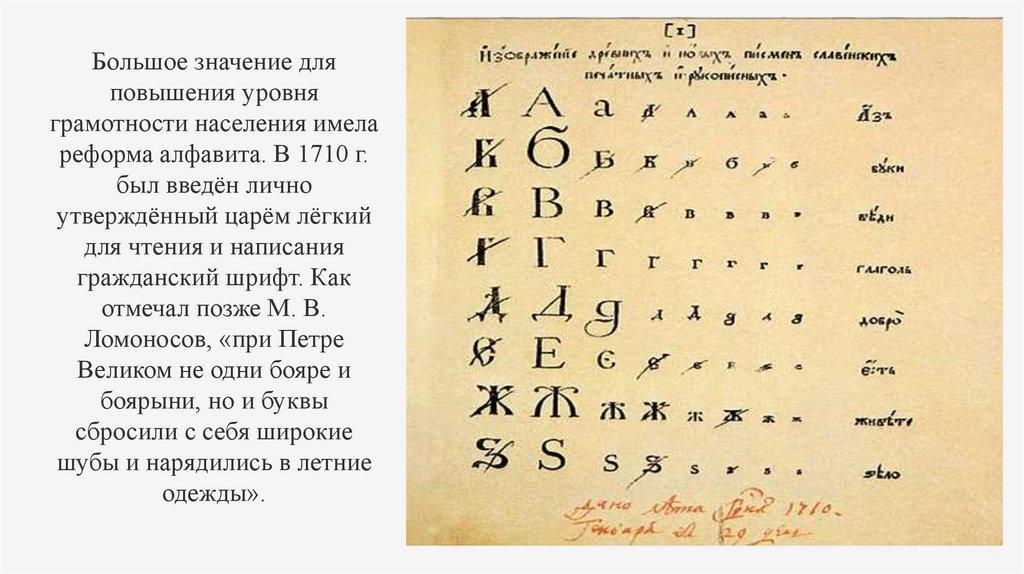 Большое значение для
повышения уровня
грамотности населения имела
реформа алфавита. В 1710 г.
был введён лично
утверждённый царём лёгкий
для чтения и написания
гражданский шрифт. Как
отмечал позже М. В.
Ломоносов, «при Петре
Великом не одни бояре и
боярыни, но и буквы
сбросили с себя широкие
шубы и нарядились в летние
одежды».
[1]
И҆зѡбраже́нїе дре́внихъ и҆ но́выхъ пи́сменъ славе́нскихъ
печа́тныхъ и҆ рꙋкопи́сныхъ.
А А а а а а а а а҆́зъ
Б Б Б Б Б б б бꙋ́ки
В В в в в в в в вѣ́ди
Г Г г г г г г г глаго́ль
Д Д д д д д д д добро̀
Є Е є є є е е є҆́сть
Ж Ж ж ж ж ж ж ж живѣ́те
Ѕ Ѕ ѕ ѕ ѕ ѕ ѕ ѕ ѕѣло̀
дано лѣта 1710.
Генваря 29 дня